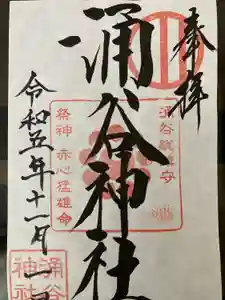 奉拝
涌谷神社
令和五年十一月一日
祭神 赤心猛雄命
涌谷神社